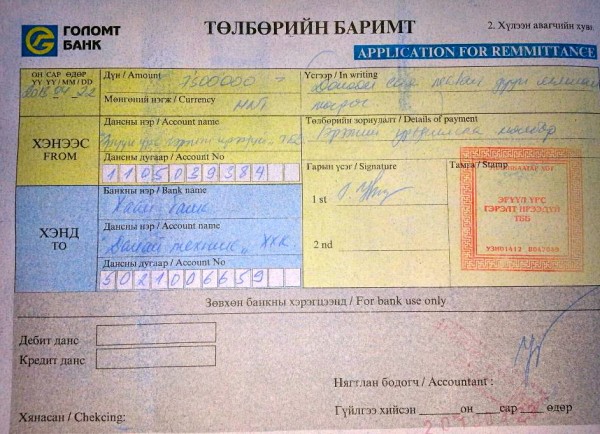 ГОЛОМТ
БАНК
ТӨЛБӨРИЙН БАРИМТ
2. Хүлээн авагчийн хувь
APPLICATION FOR REMMITTANCE
ОН САР ӨДӨР
YY YY / MM / DD
Дүн / Amount 7500000 =
Мөнгөний нэгж / Currency MNT
Үсгээр / In writing
Төлбөрийн зориулалт / Details of payment
ХЭНЭЭС
FROM
Дансны нэр / Account name
Дансны дугаар / Account No
1105029384
Гарын үсэг / Signature
1 st
2 nd
Тамга / Stamp
УЛААНБААТАР ХОТ
ЭРҮҮЛ УРГ
ГЭРЭЛТ ИРЭЭДҮЙ
ТББ
ХЭНД
TO
Банкны нэр / Bank name
Хаан банк
Дансны нэр / Account name
"Далай техник" ХХК
Дансны дугаар / Account No
5021006659
Зөвхөн банкны хэрэгцээнд / For bank use only
Дебит данс
Кредит данс
Нягтлан бодогч / Accountant :
Хянасан / Chekcing:
Гүйлгээ хийсэн ____ он ____ сар ____ өдөр